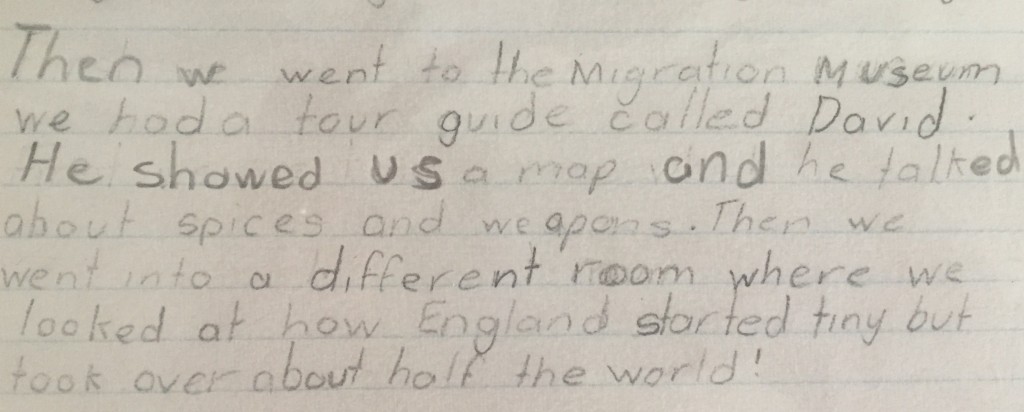 Then we went to the Migration Museum
we had a tour guide called David.
He showed us a map and he talked
about spices and weapons. Then we
went into a different room where we
looked at how England started tiny but
took over about half the world!